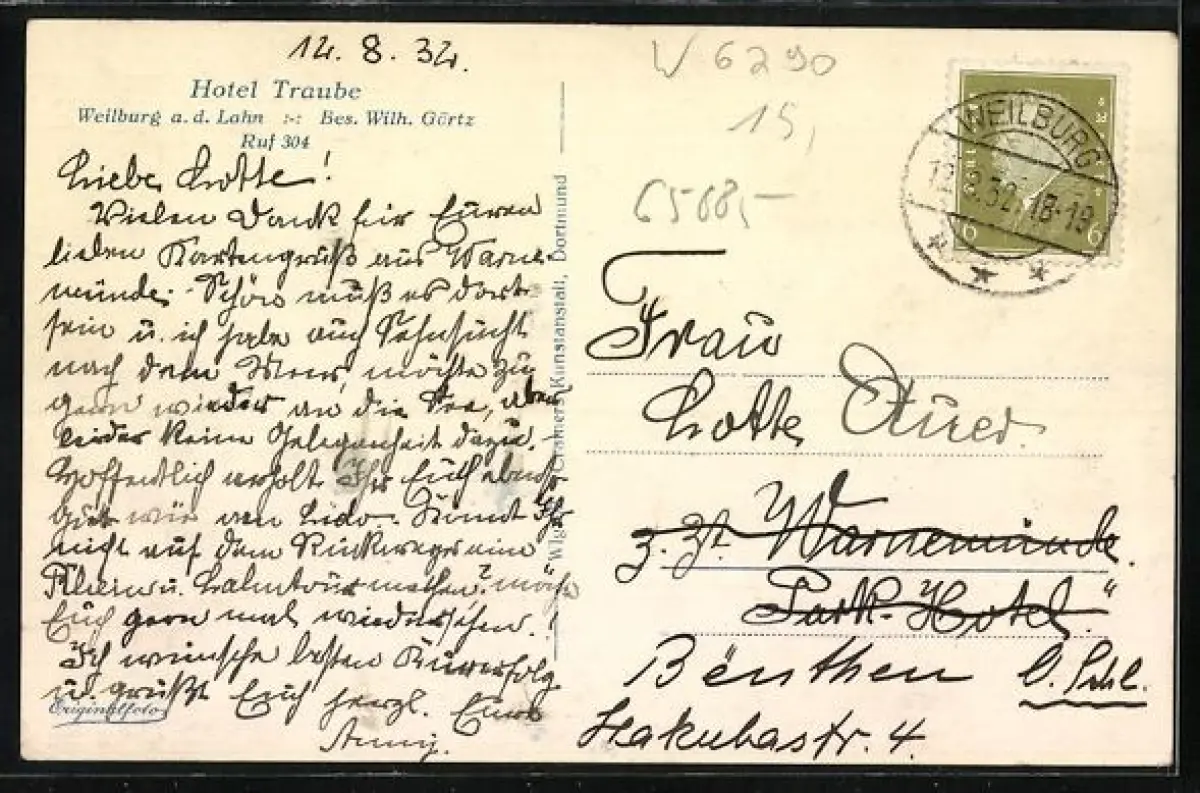 12. 8. 32.
Hotel Traube
Weilburg a. d. Lahn :-: Bes. Wilh. Görtz
Ruf 304
Liebe Lotte!
Vielen Dank für Euren
lieben Kartengruß aus Warne-
münde. Schön muß es dort
sein u. ich habe auch Sehnsucht
nach dem Meer, möchte zu
gern wieder an die See, aber
leider keine Gelegenheit dazu.
Hoffentlich erholt Ihr Euch ebenso
gut wie am Lido. Könnt Ihr
nicht auf dem Rückwege eine
Rhein u. Lahntour machen? möchte
Euch gern mal wiedersehen!
Ich wünsche besten Kurerfolg
u. grüßt Euch herzl. Eure
Anny.
Originalfoto
Cramers Kunstanstalt, Dortmund
W 6290
15,
WEILBURG
12.8.32. 18-19
6 6
Frau
Lotte Auer.
z. Zt. Warnemünde.
Park-Hotel"
Beuthen O. Schl.
Hakubastr. 4.